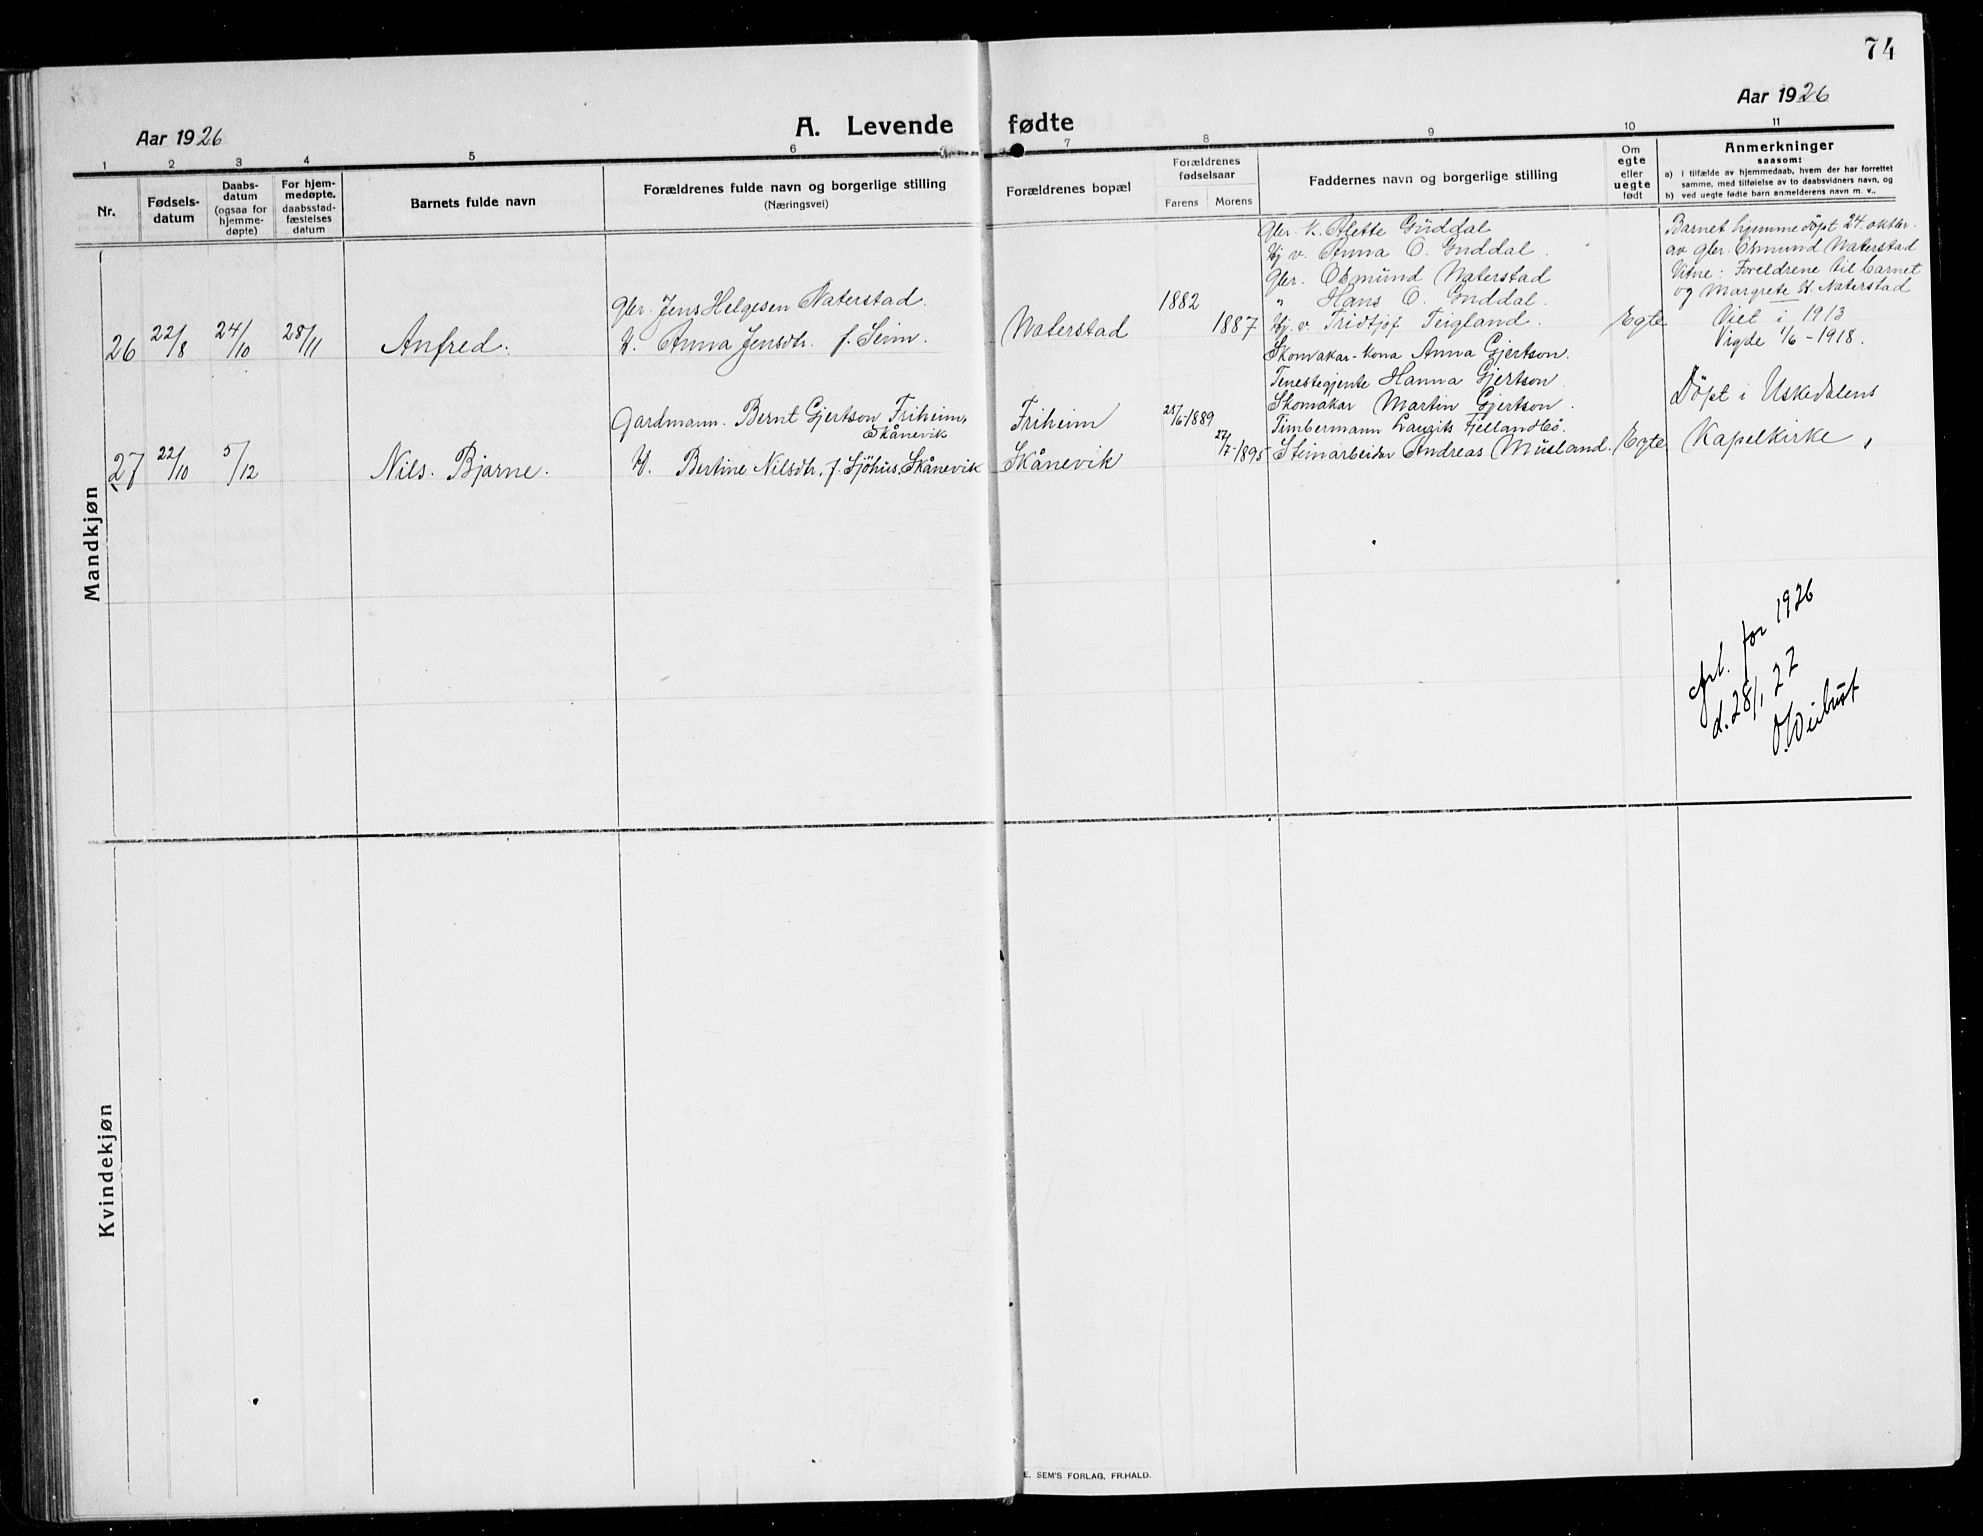 74
Aar 1926
A. Levende fødte
Aar 1926
1 2 3 4 5 6 7 8 9 10 11
Nr.
Fødsels-
datum
Daabs-
datum
(ogsaa for
hjemme-
døpte)
For hjem-
medøpte,
daabsstad-
fæstelses
datum
Barnets fulde navn
Forældrenes fulde navn og borgerlige stilling
(Næringsvei)
Forældrenes bopæl
Forældrenes
fødselsaar
Farens Morens
Faddernes navn og borgerlige stilling
Om
egte
eller
uegte
født
Anmerkninger
saasom:
a) i tilfælde av hjemmedaab, hvem der har forrettet
samme, med tilføielse av to daabsvidners navn, og
b) ved uegte fødte barn anmelderens navn m. v..
Mandkjøn
26
22/8
24/10
28/11
Anfred.
Gbr. Jens Helgesen Naterstad.
H. Anna Jensdtr. f. Seim.
Naterstad
1882
1887
Gbr. k. Alette Guddal
Uj v. Anna O. Guddal.
Gbr. Osmund Naterstad
" Hans O. Guddal.
Uj. v. Fridtjof Teigland.
Egte
Barnet hjemmedöpt 24. oktbr.
av gbr. Osmund Naterstad
Vitne: Foreldrene til barnet
og Margrete H. Naterstad
Viet i 1913
Vigde 1/6 - 1918.
27
22/10
5/12
Nils. Bjarne.
Gardmann. Bernt Gjertson Friheim,
Skånevik
H. Bertine Nilsdtr. f. Sjöhus, Skånevik
Friheim
Skånevik
/6-1889
27/7-1895
Skomakar-kona Anna Gjertson.
Tenestegjente Hanna Gjertson
Skomakar Martin Gjertson.
Timbermann Laugits Fjellandbö.
Steinarbeider Andreas Musland.
Egte
Döpt i Uskedalens
Kapelkirke,
for 1926
d. 28/1 27
O. Weibust
Kvindekjøn
E. SEM'S FORLAG, FR.HALD.